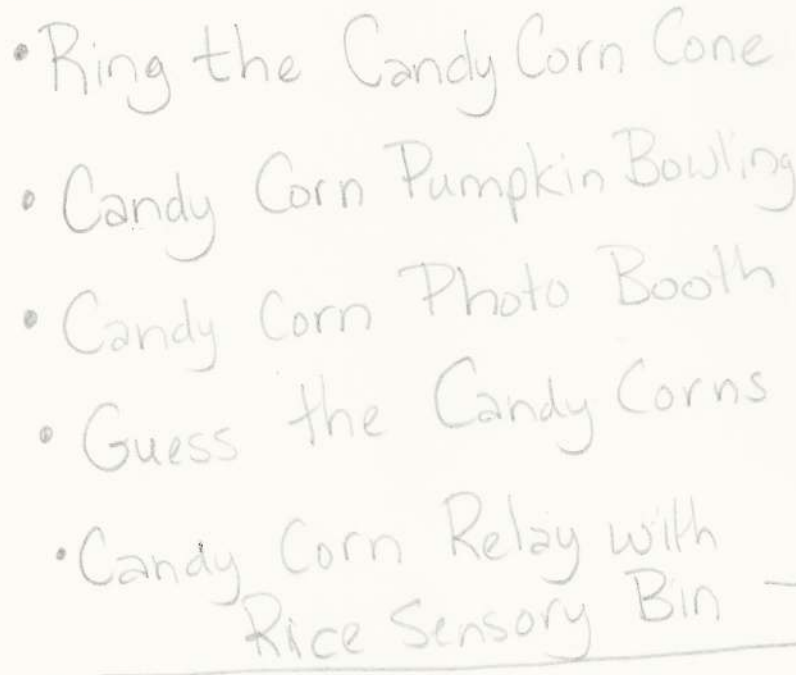 • Ring the Candy Corn Cone
• Candy Corn Pumpkin Bowling
• Candy Corn Photo Booth
• Guess the Candy Corns
• Candy Corn Relay with
Rice Sensory Bin –